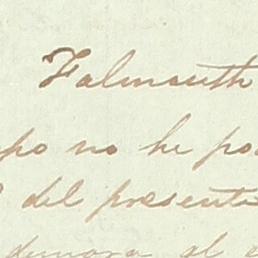 Falmouth
no he
del presente
demora al